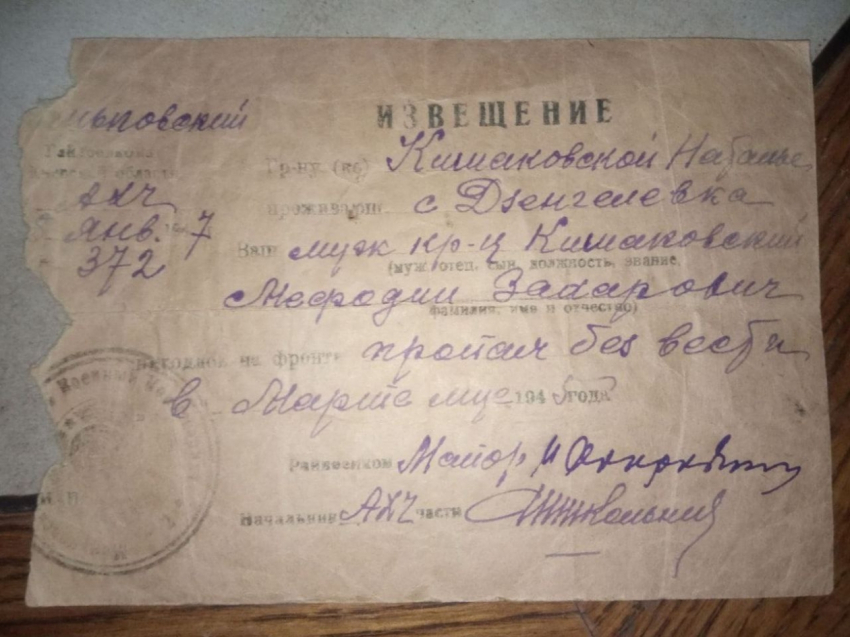 ньковский
Райвоенкомат
области
АХЧ
Янв. 7
372
ИЗВЕЩЕНИЕ
Гр-ну (ке) Кишаковской Наталье
проживающ. с Дзенгелевка
Ваш муж кр-ц Кишаковский
(муж, отец, сын, должность, звание,
Мефодий Захарович
фамилия, имя и отчество)
находясь на фронте пропал без вести
в Марте м-це 1945 года
Райвоенком Майор
Начальник АХЧ части Школьный
М П
Военный